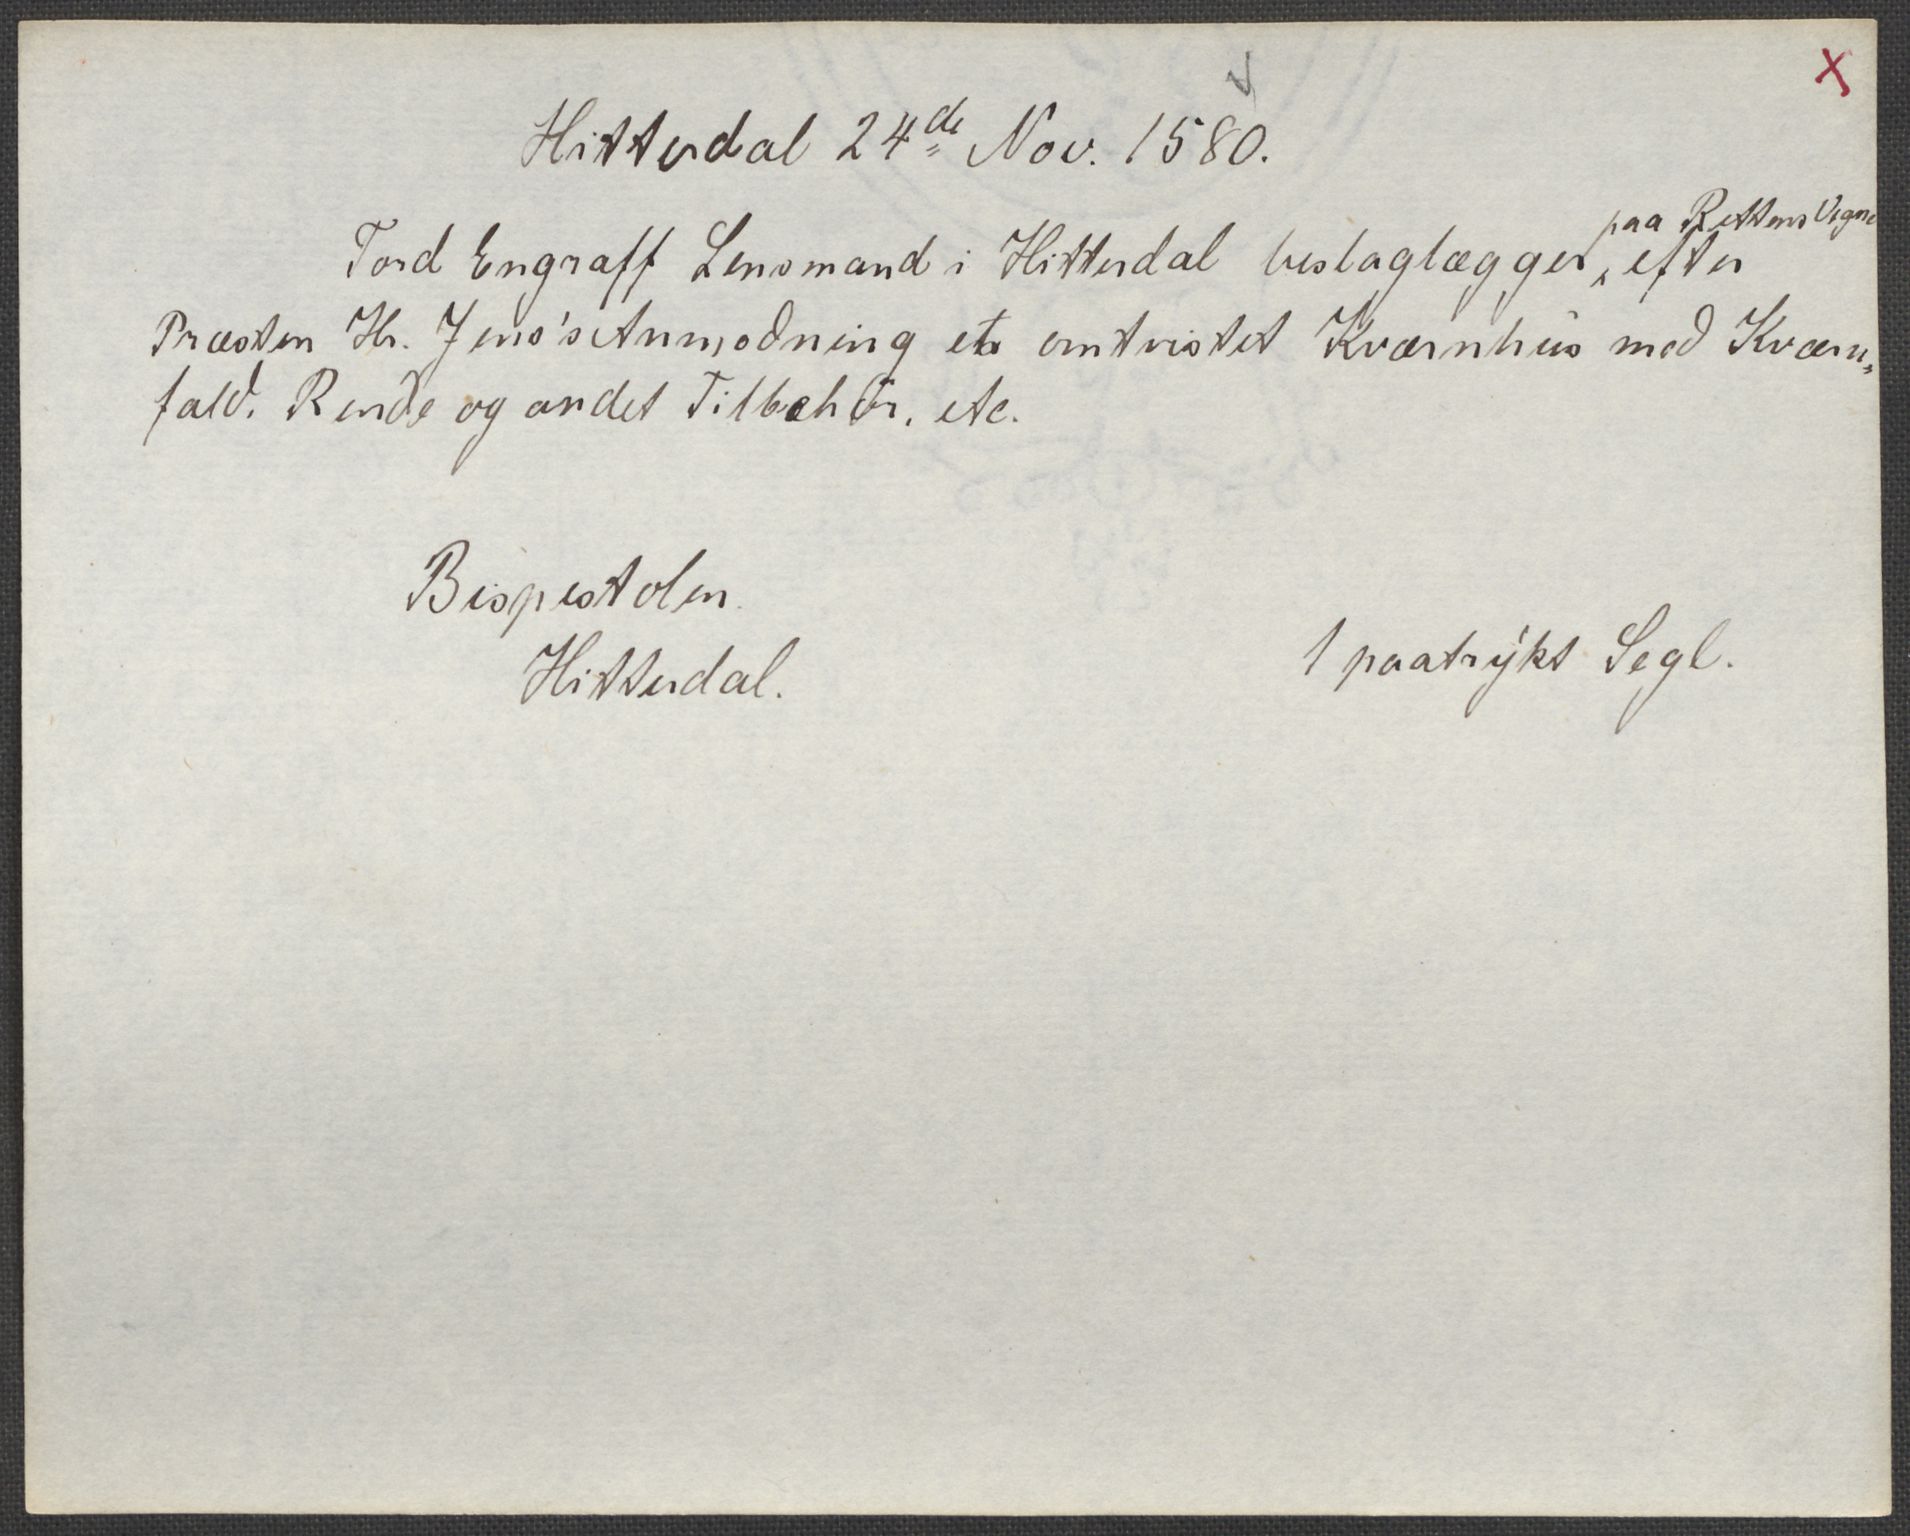 X
Hitterdal 24de Nov. 1580.
paa Rettens Vegne
Tord Engraff Lensmand i Hitterdal beslaglægger, efter
Præsten Hr. Jens's Anmodning et omtvistet Kværnhus med Kværn-
fald, Rende og andet Tilbehör, etc.
Bispestolen.
Hitterdal.
1 paatrykt Segl.